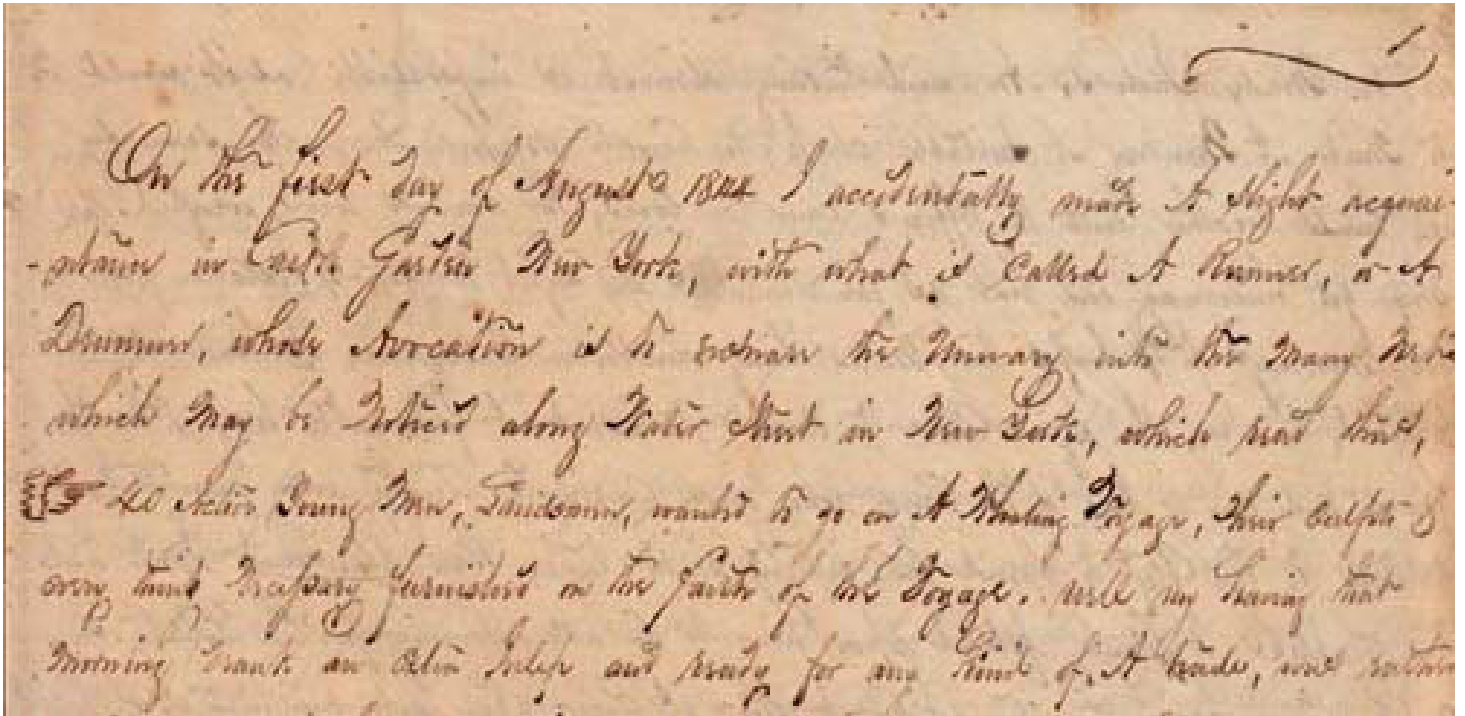 1
On the first day of August 1844 I accidentally made A slight acquai-
-ntance in Castle Garden New York, with what is Called A Runner, or A
Drummer, whose Avocation is to ensnare the Unwary into the Many
which May be Noticed along Water Street in New York, which read thus,
☞ 40 Active Young Men, Landsmen, wanted to go on A Whaling Voyage, their outfits &
every thing Necessary furnished on the faith of the Voyage. well my having that
Morning drank an extra Julep and ready for any kind of A trade, was